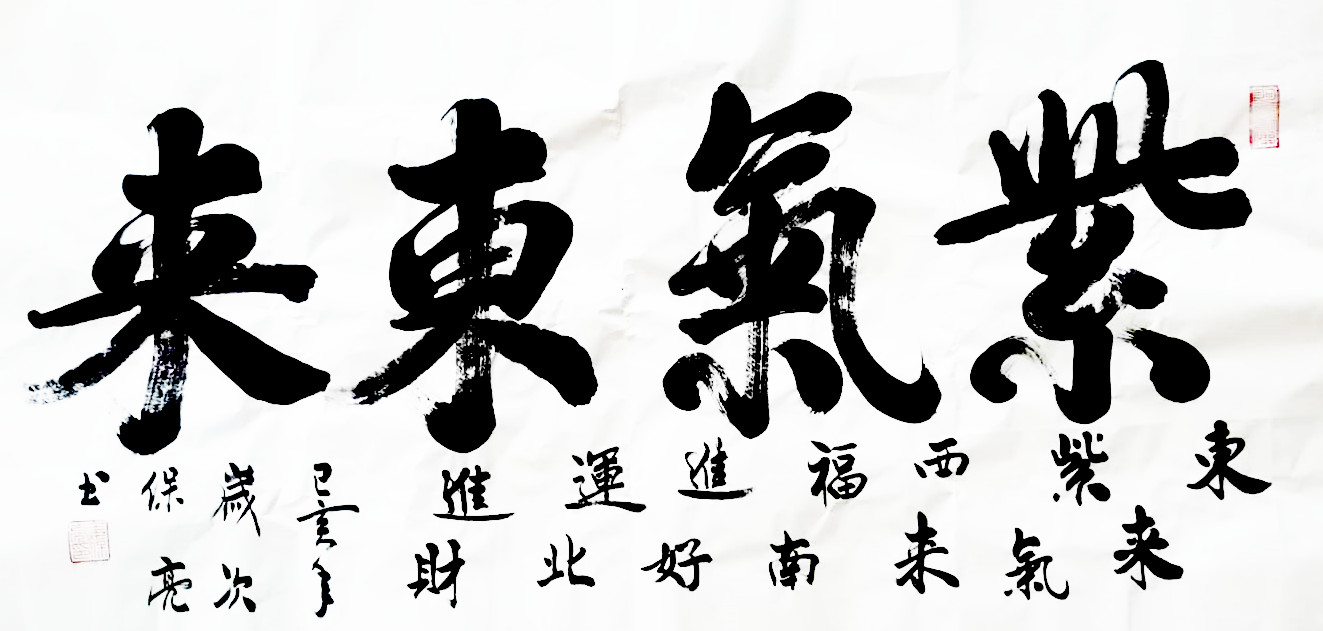 紫氣東来
東来紫氣西来福南進好運北進財
己亥年
歲次
保亮
书